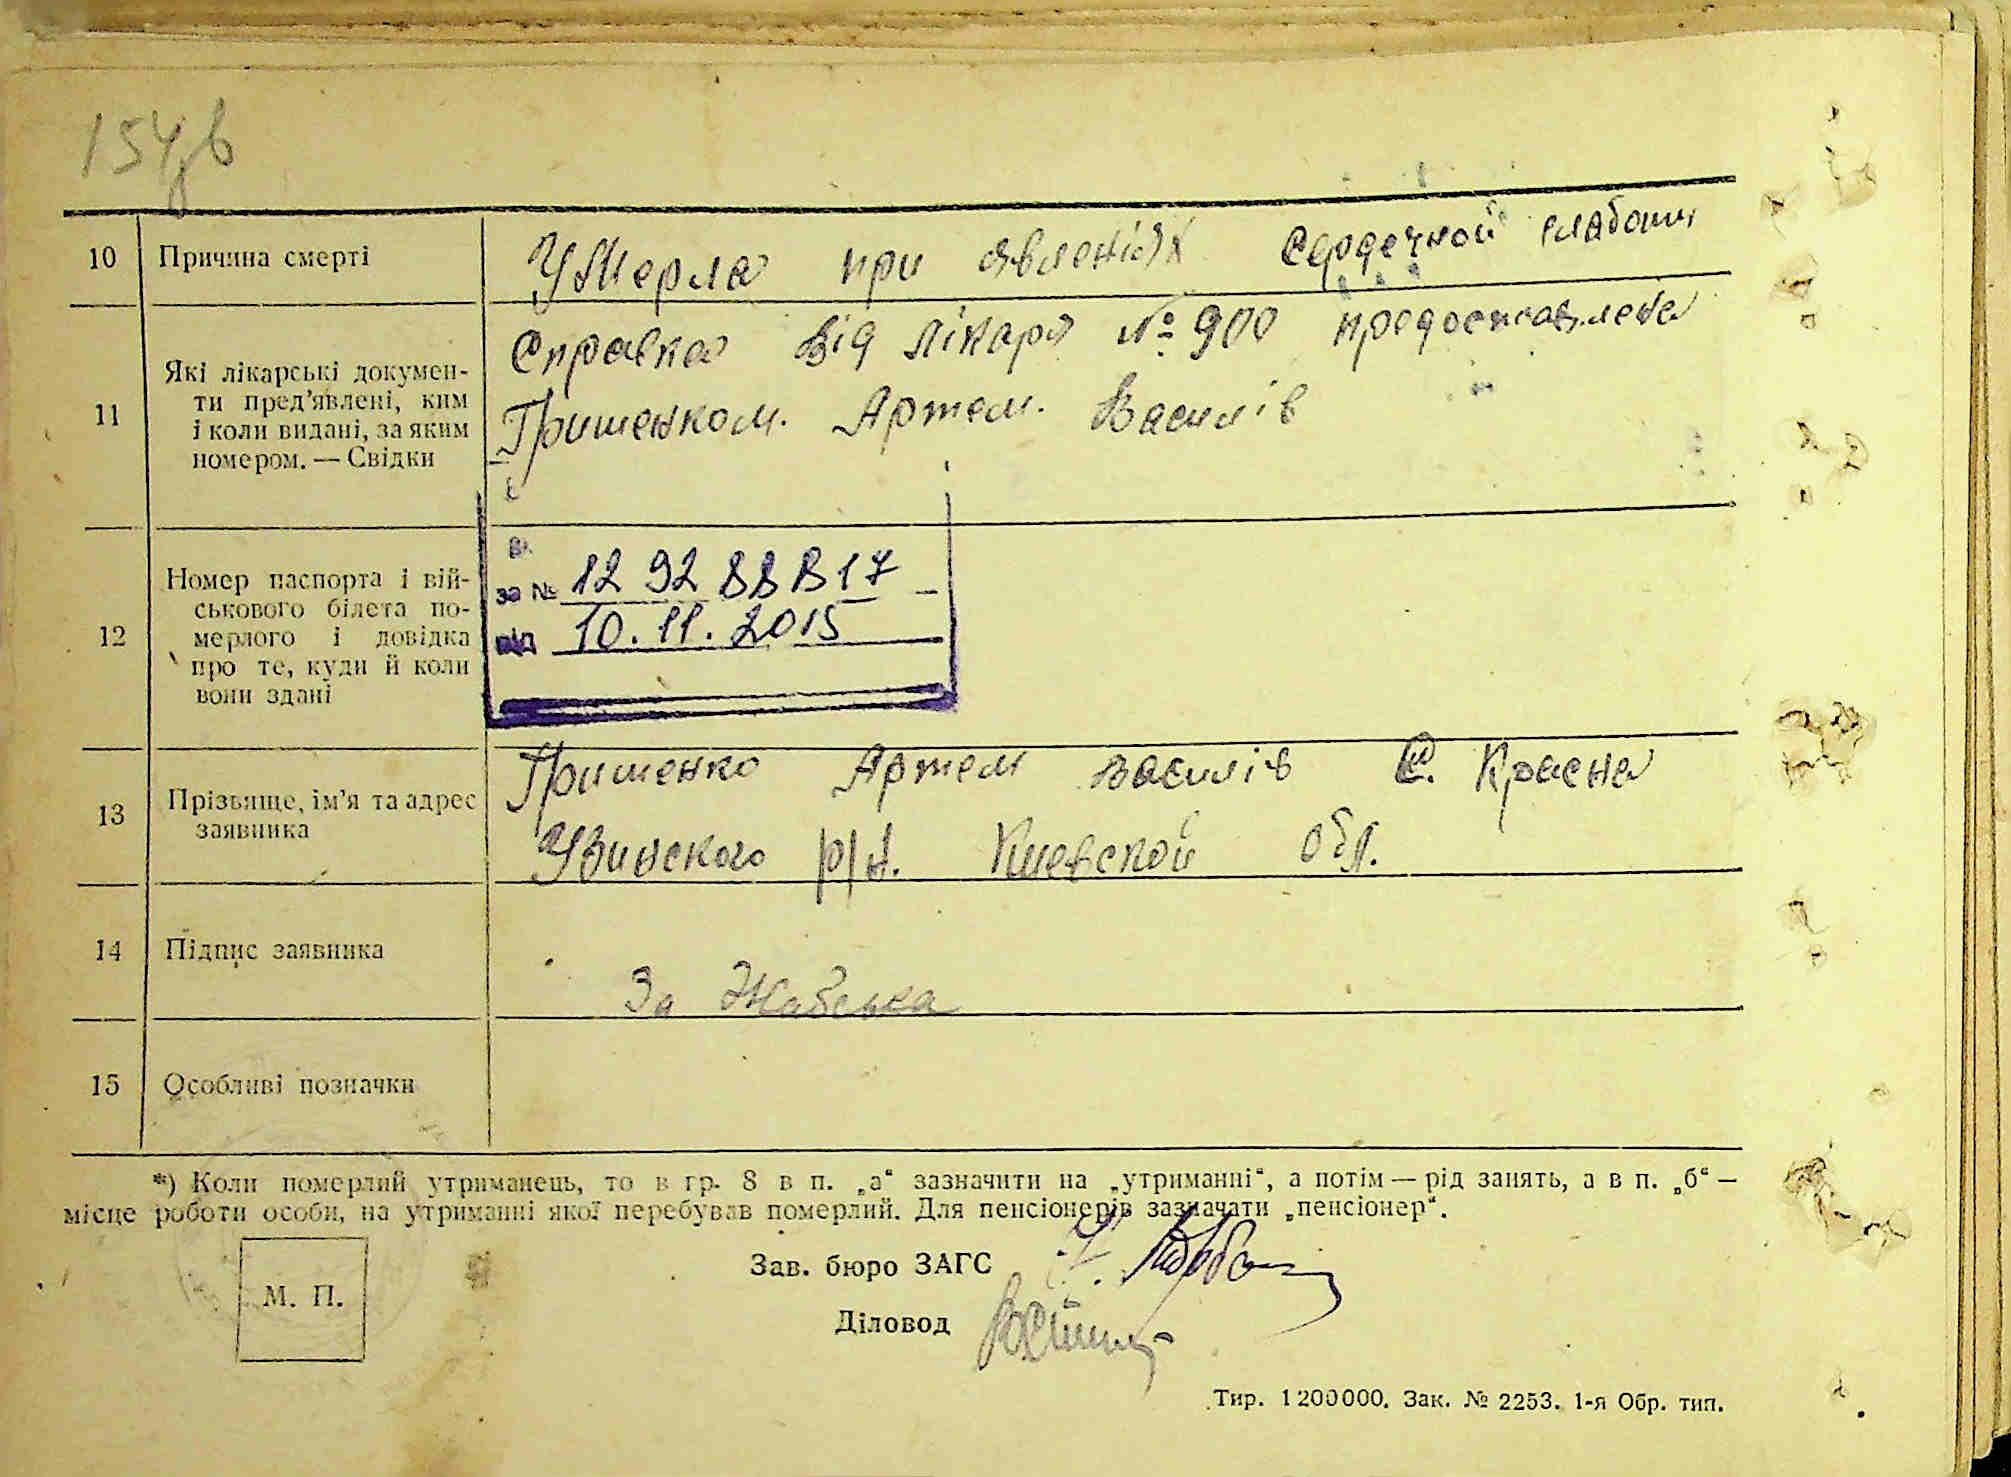 154зв
10 Причина смерті Умерла при явленіях сердечной слабости
11 Які лікарські докумен-
ти пред'явлені, ким
і коли видані, за яким
номером. — Свідки
Справка від лікаря № 900 предоставлена
Гришенком. Артем. Василів
12 Номер паспорта і вій-
ськового білета по-
мерлого і довідка
про те, куди й коли
вони здані
за № 12 92 88 В17
від 10.11.2015
13 Прізвище, ім'я та адрес
заявника
Гришенко Артем Василів С. Красне
Узинского р/н. Киевской обл.
14 Підпис заявника За
15 Особливі позначки
*) Коли померлий утриманець, то в гр. 8 в п. „а“ зазначити на „утриманні“, а потім — рід занять, а в п. „б“ —
місце роботи особи, на утриманні якої перебував померлий. Для пенсіонерів зазначати „пенсіонер“.
Зав. бюро ЗАГС
М. П.
Діловод
Тир. 1200000. Зак. № 2253. 1-я Обр. тип.